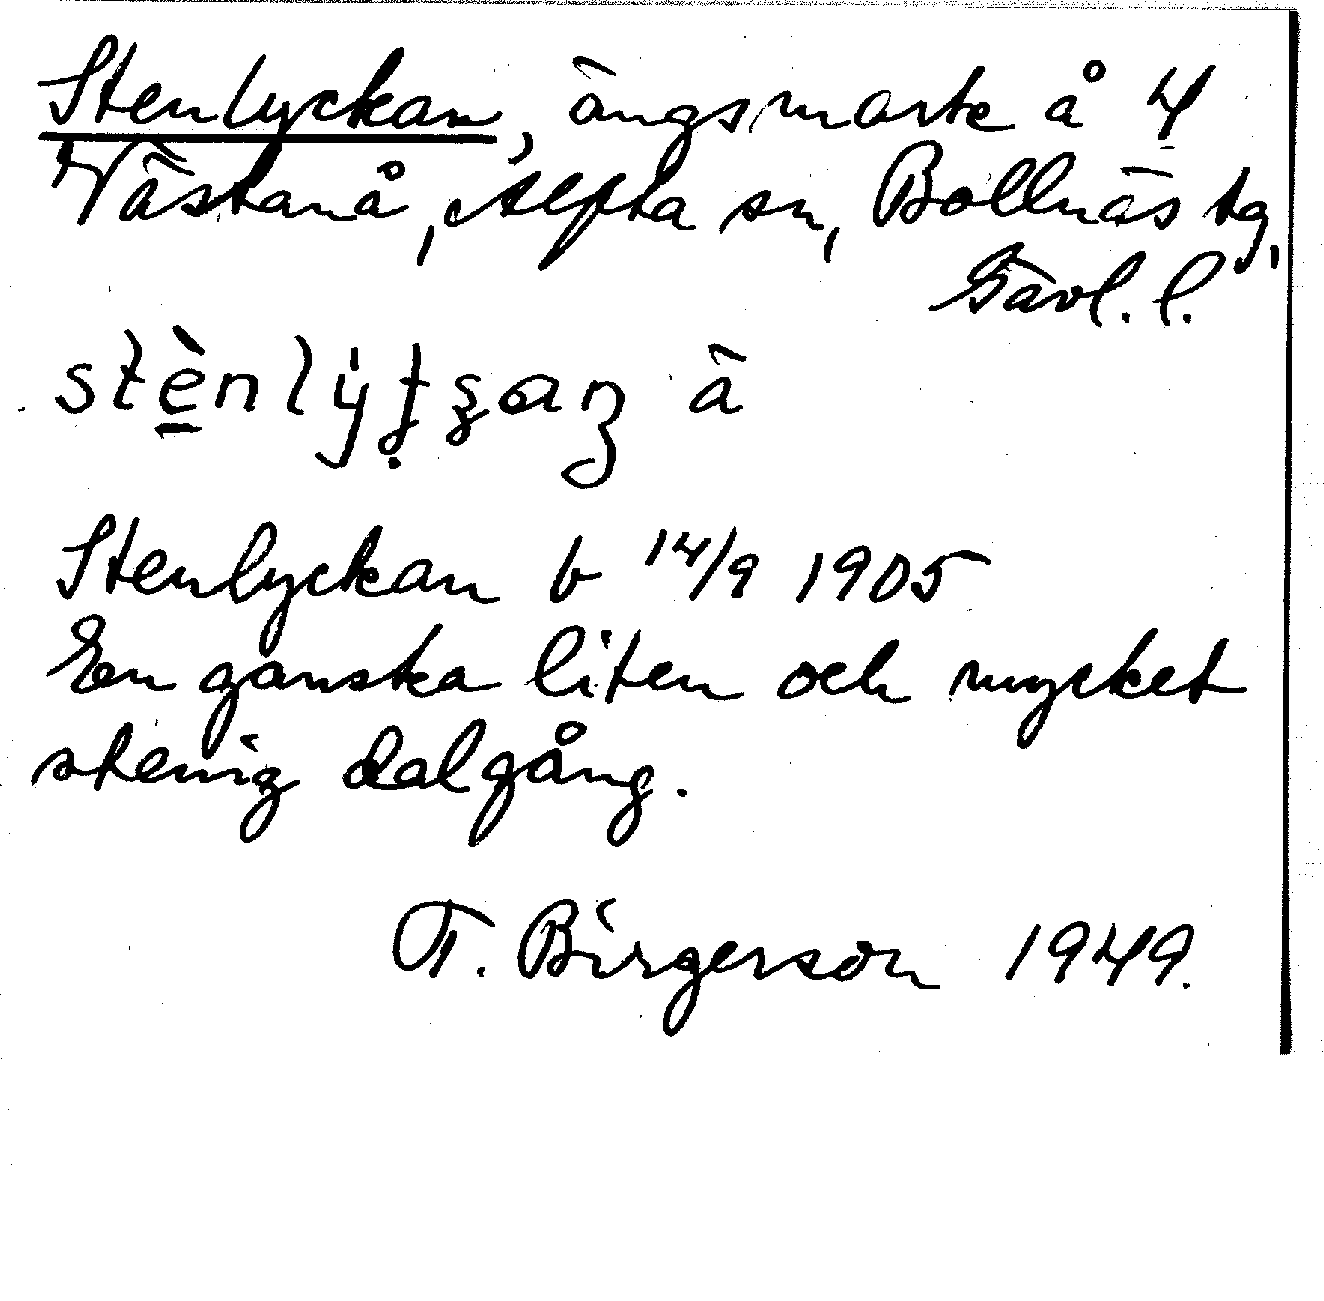 Stenlyckan, ängsmark å 4
Västanå, Alfta sn, Bollnäs tg,
Gävl. l.
stènlýtʂaɳ ä
Stenlyckan b 14/9 1905
En ganska liten och mycket
stenig dalgång.
F. Birgerson 1949.